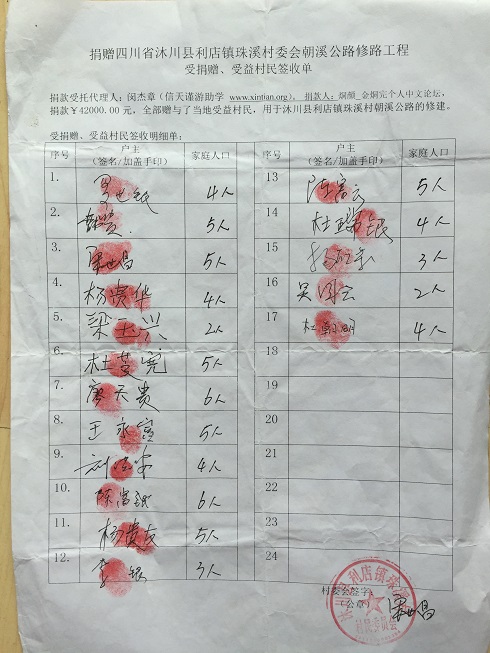 捐赠四川省沐川县利店镇珠溪村委会朝溪公路修路工程
受捐赠、受益村民签收单
捐款受托代理人:闵杰章(信天谨游助学 www.xintian.org)。捐款人:炯颜_金炯完个人中文论坛,
捐款¥42000.00 元,全部赠与了当地受益村民,用于沐川县利店镇珠溪村朝溪公路的修建。
受捐赠、受益村民签收明细单:
序号 户主 家庭人口 序号 户主 家庭人口
(签名/加盖手印) (签名/加盖手印)
1. 4人 13 5人
2. 5人 14 杜 银 4人
3. 5人 15 3人
4. 杨贵华 4人 16 2人
5. 梁玉兴 2人 17 杜朝明 4人
6. 杜 5人 18
7. 天贵 6人 19
8. 王永 5人 20
9. 刘 4人 21
10. 陈富 6人 22
11. 杨贵友 5人 23
12. 银 3人 24
村委会签字:
(公章)